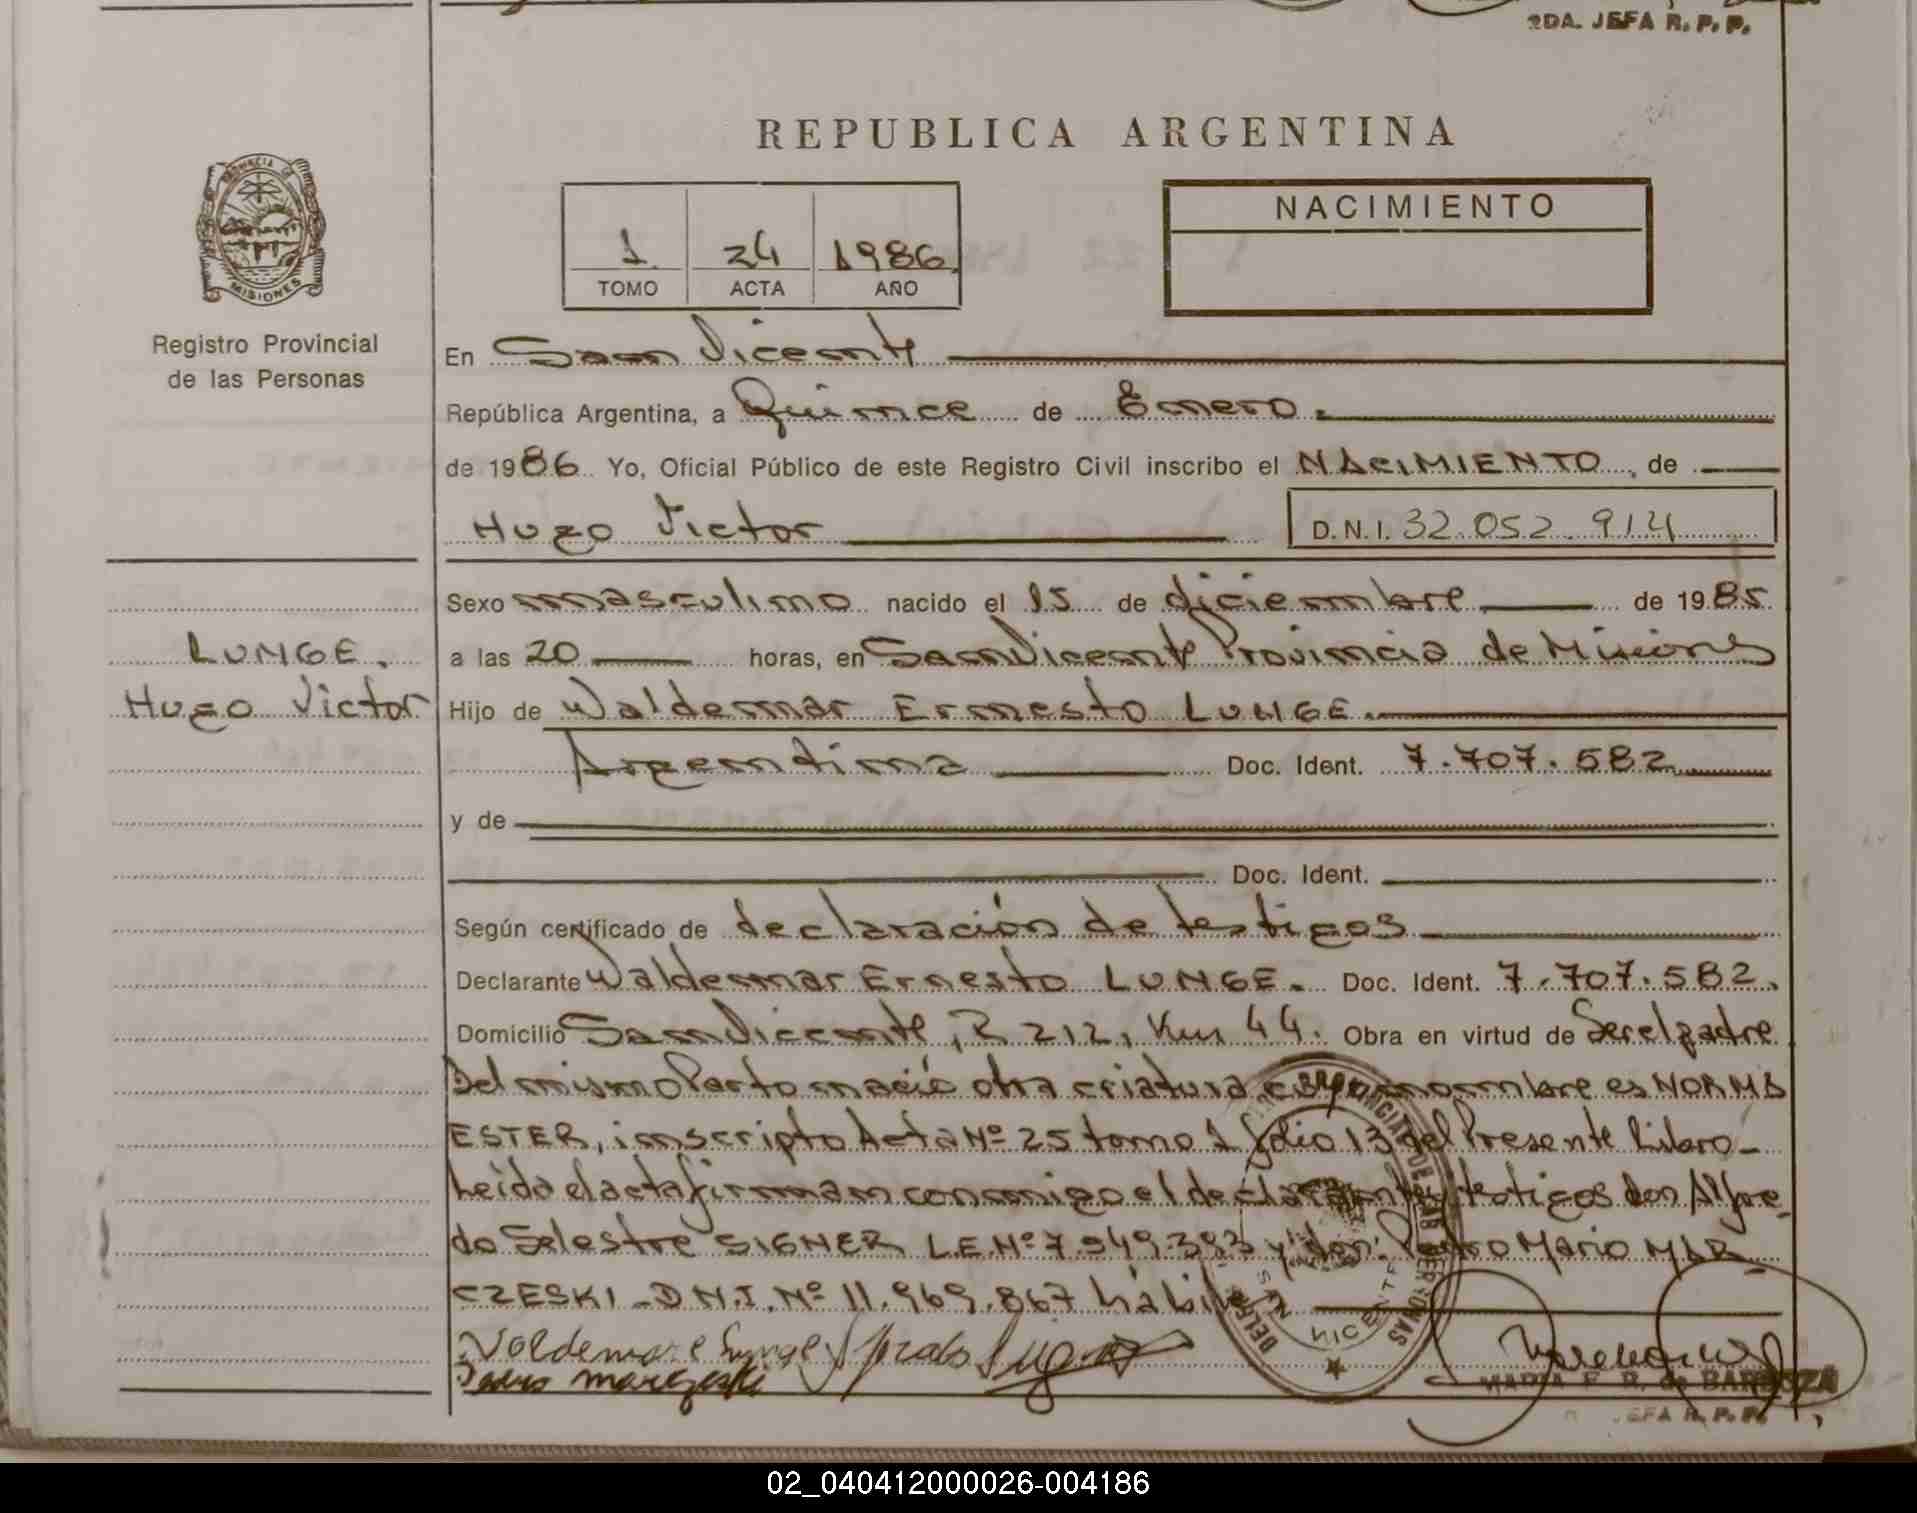 2DA. JEFA R. P. P.
REPUBLICA ARGENTINA
PROVINCIA DE
MISIONES
1. 24 1986.
TOMO ACTA AÑO
NACIMIENTO
Registro Provincial
de las Personas
En San Vicente
República Argentina, a Quince de Enero.
de 1986 Yo, Oficial Público de este Registro Civil inscribo el NACIMIENTO, de
Hugo Victor D.N.I. 32.052.914
Sexo masculino nacido el 15 de diciembre de 1985
LUNGE.
a las 20 horas, en San Vicente Provincia de Misiones
Hugo Victor
Hijo de Waldemar Ernesto LUNGE.
Argentina Doc. Ident. 7.707.582
y de
Doc. Ident.
Según certificado de declaración de testigos
Declarante Waldemar Ernesto LUNGE. Doc. Ident. 7.707.582.
Domicilio San Vicente, R 212, Km 44. Obra en virtud de Ser el padre
Del mismo Parto nació otra criatura cuyo nombre es NORMA
ESTER, inscripto Acta Nº 25 tomo 1 folio 13 del Presente Libro-
Leída el acta firman conmigo el declarante y testigos don Alfre-
do Selestre SIGNER L.E.Nº 7.949.393 y don: Pedro Mario MAR-
CZESKI - D.N.I. Nº 11.969.867 hábiles
Pedro Marczeski
MARIA E. R. de BARBOZA
JEFA R. P. P.
02_040412000026-004186